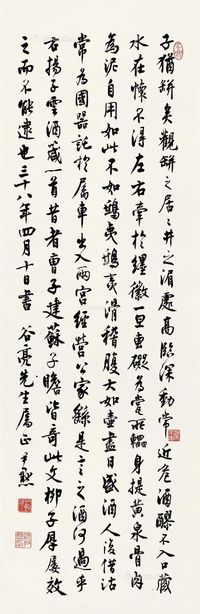 子猶缾矣觀缾之居居井之湄處高臨深動常近危酒醪不入口臧
水在懷不得左右牽於纆徽一旦叀礙為瓽所轠身提黃泉骨肉
為泥自用如此不如鴟夷鴟夷滑稽腹大如壺盡日盛酒人復借沽
常為國器託於屬車出入兩宮經營公家繇是言之酒何過乎
右揚子雲酒箴一首昔者曹子建蘇子瞻皆奇此文柳子厚屢效
之而不能遠也三十八年四月十日書 谷亮先生屬正 尹默